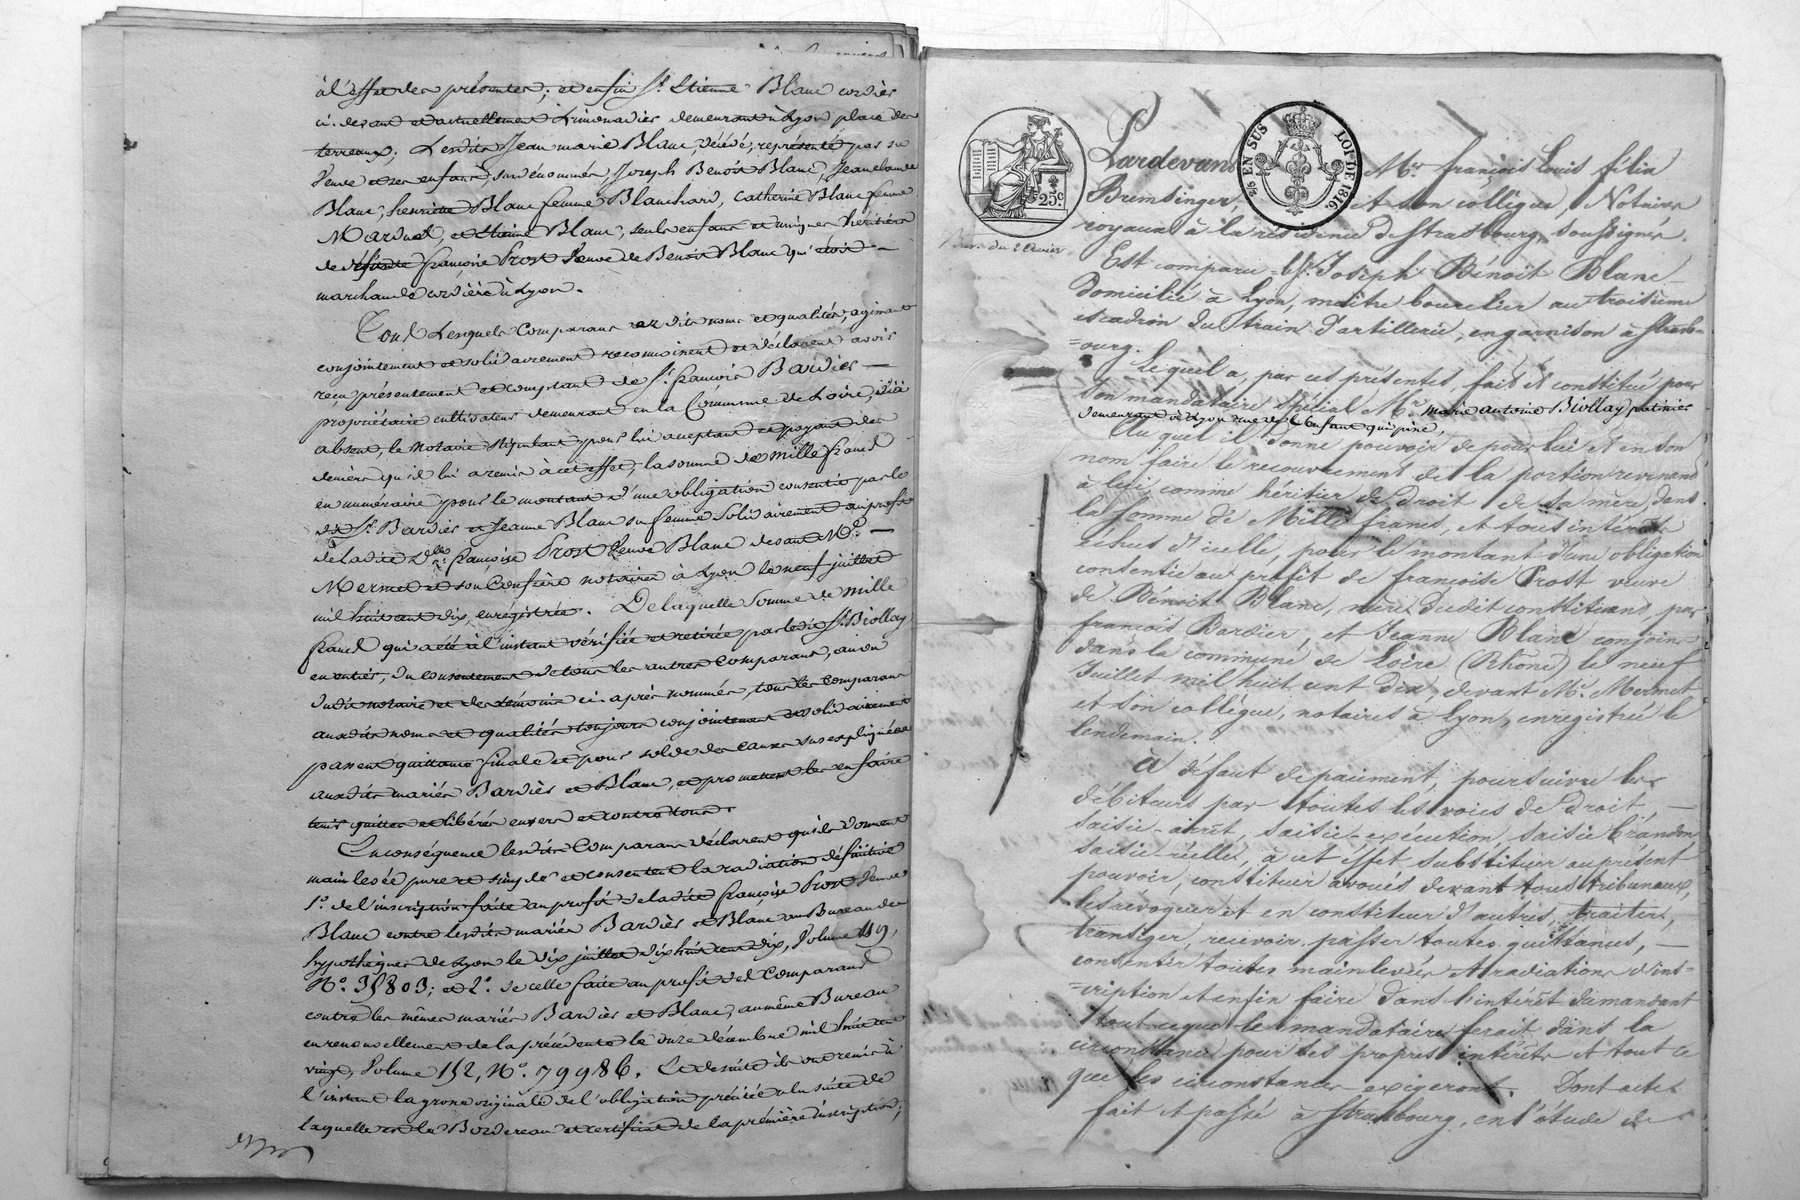 à l'effet des présentes; et enfin Sr. Etienne Blanc cordier
ci-devant et actuellement Limonadier demeurant à Lyon place des
terreaux; Lesdits Jean marie Blanc, décédé, représenté par sa
Veuve et ses enfans, susdénommés, Joseph Benoit Blanc, Jeanne
Blanc, henriette Blanc femme Blanchard, Catherine Blanc femme
Marduel, et Etienne Blanc, seuls enfans et uniques héritiers
de défunte françoise Prost Veuve de Benoit Blanc qui étoit —
marchande cordière à Lyon.
Tous Lesquels Comparans auxdits noms et qualités, agissant
conjointement et solidairement reconnoissent et déclarent avoir
reçu présentement et comptant de Sr. françois Bardier —
propriétaire cultivateur demeurant en la Commune de Loire, ici
absent, le Notaire stipulant pour lui acceptant et payant des
deniers qu'il lui a remis à cet effet, la somme de Mille francs
en numéraire pour le montant d'une obligation consentie par le
dit Sr. Bardier et Jeanne Blanc sa femme solidairement au profit
de ladite Dlle. françoise Prost Veuve Blanc devant Me. —
Mermet et son Confrère notaires à Lyon le neuf juillet
mil huit cent dix, enrégistrée. De laquelle Somme de mille
francs qui a été à l'instant vérifiée et retirée par ledit Sr. Biollay
en entier, du consentement de tous les autres Comparans, au vu
dudit notaire et des témoins ci-après nommés, tous les comparans
auxdits noms et qualités toujours conjointement et solidairement
passent quittance finale et pour solde des causes susexpliquées
auxdits mariés Bardier et Blanc, et promettent les en faire
tenir quittes et libérés envers et contre tous.
En conséquence lesdits Comparans déclarent qu'ils donnent
main levée pure et simple et consentent la radiation définitive
1o. de l'inscription faite au profit de ladite françoise Prost Veuve
Blanc contre lesdits mariés Bardier et Blanc au Bureau des
hypothèques de Lyon le dix juillet dix huit cent dix, Volume 119,
No. 35803; et 2o. de celle faite au profit des Comparans
contre les mêmes mariés Bardier et Blanc, au même Bureau
en renouvellement de la précédente le onze décembre mil huit cent
vingt, Volume 152, No. 79986. Et de suite ils ont remis à
l'instant la grosse originale de l'obligation précitée à la suite de
laquelle est le Bordereau et certificat de la première inscription;
25c.
2/5 EN SUS
LOI DE 1816.
Pardevant Mes. françois Louis félix
Bremsinger et son collègue, Notaires
royaux à la résidence de Strasbourg, soussignés.
Est comparu le Sr. Joseph Bénoit Blanc
domicilié à Lyon, maître bourelier au troisième
escadron du train d'artillerie, en garnison à Stras-
=bourg.
Lequel a, par ces présentes, fait et constitué pour
son mandataire spécial Mr. marie antoine Biollay patinier
demeurant à Lyon rue de l'Enfant qui pisse,
Auquel il donne pouvoir de pour lui et en son
nom faire le recouvrement de la portion revenant
à lui comme héritier de droit de sa mère, dans
la somme de Mille francs, et tous intérêts
échus d'icelle, pour le montant d'une obligation
consentie au profit de françoise Prost veuve
de Bénoit Blanc, mère dudit constituant, par
françois Bardier, et Jeanne Blanc conjoints
dans la commune de Loire (Rhône) le neuf
Juillet mil huit cent dix, devant Me. Mermet
et son collègue, notaires à Lyon, enregistrée le
lendemain.
À défaut de paiement, poursuivre les
débiteurs par toutes les voies de droit, —
saisie-arrêt, saisie-exécution, saisie brandon
saisie-réelle, à cet effet substituer au présent
pouvoir, constituer avoués devant tous tribunaux,
les révoquer et en constituer d'autres, traiter,
transiger, recevoir, passer toutes quittances, —
consentir toutes mainlevées et radiations d'ins-
=cription et enfin faire dans l'intérêt du mandant
tout ce que le mandataire ferait dans la
circonstance pour ses propres intérêts et tout ce
que les circonstances exigeront. Dont acte
fait et passé à Strasbourg, en l'étude de